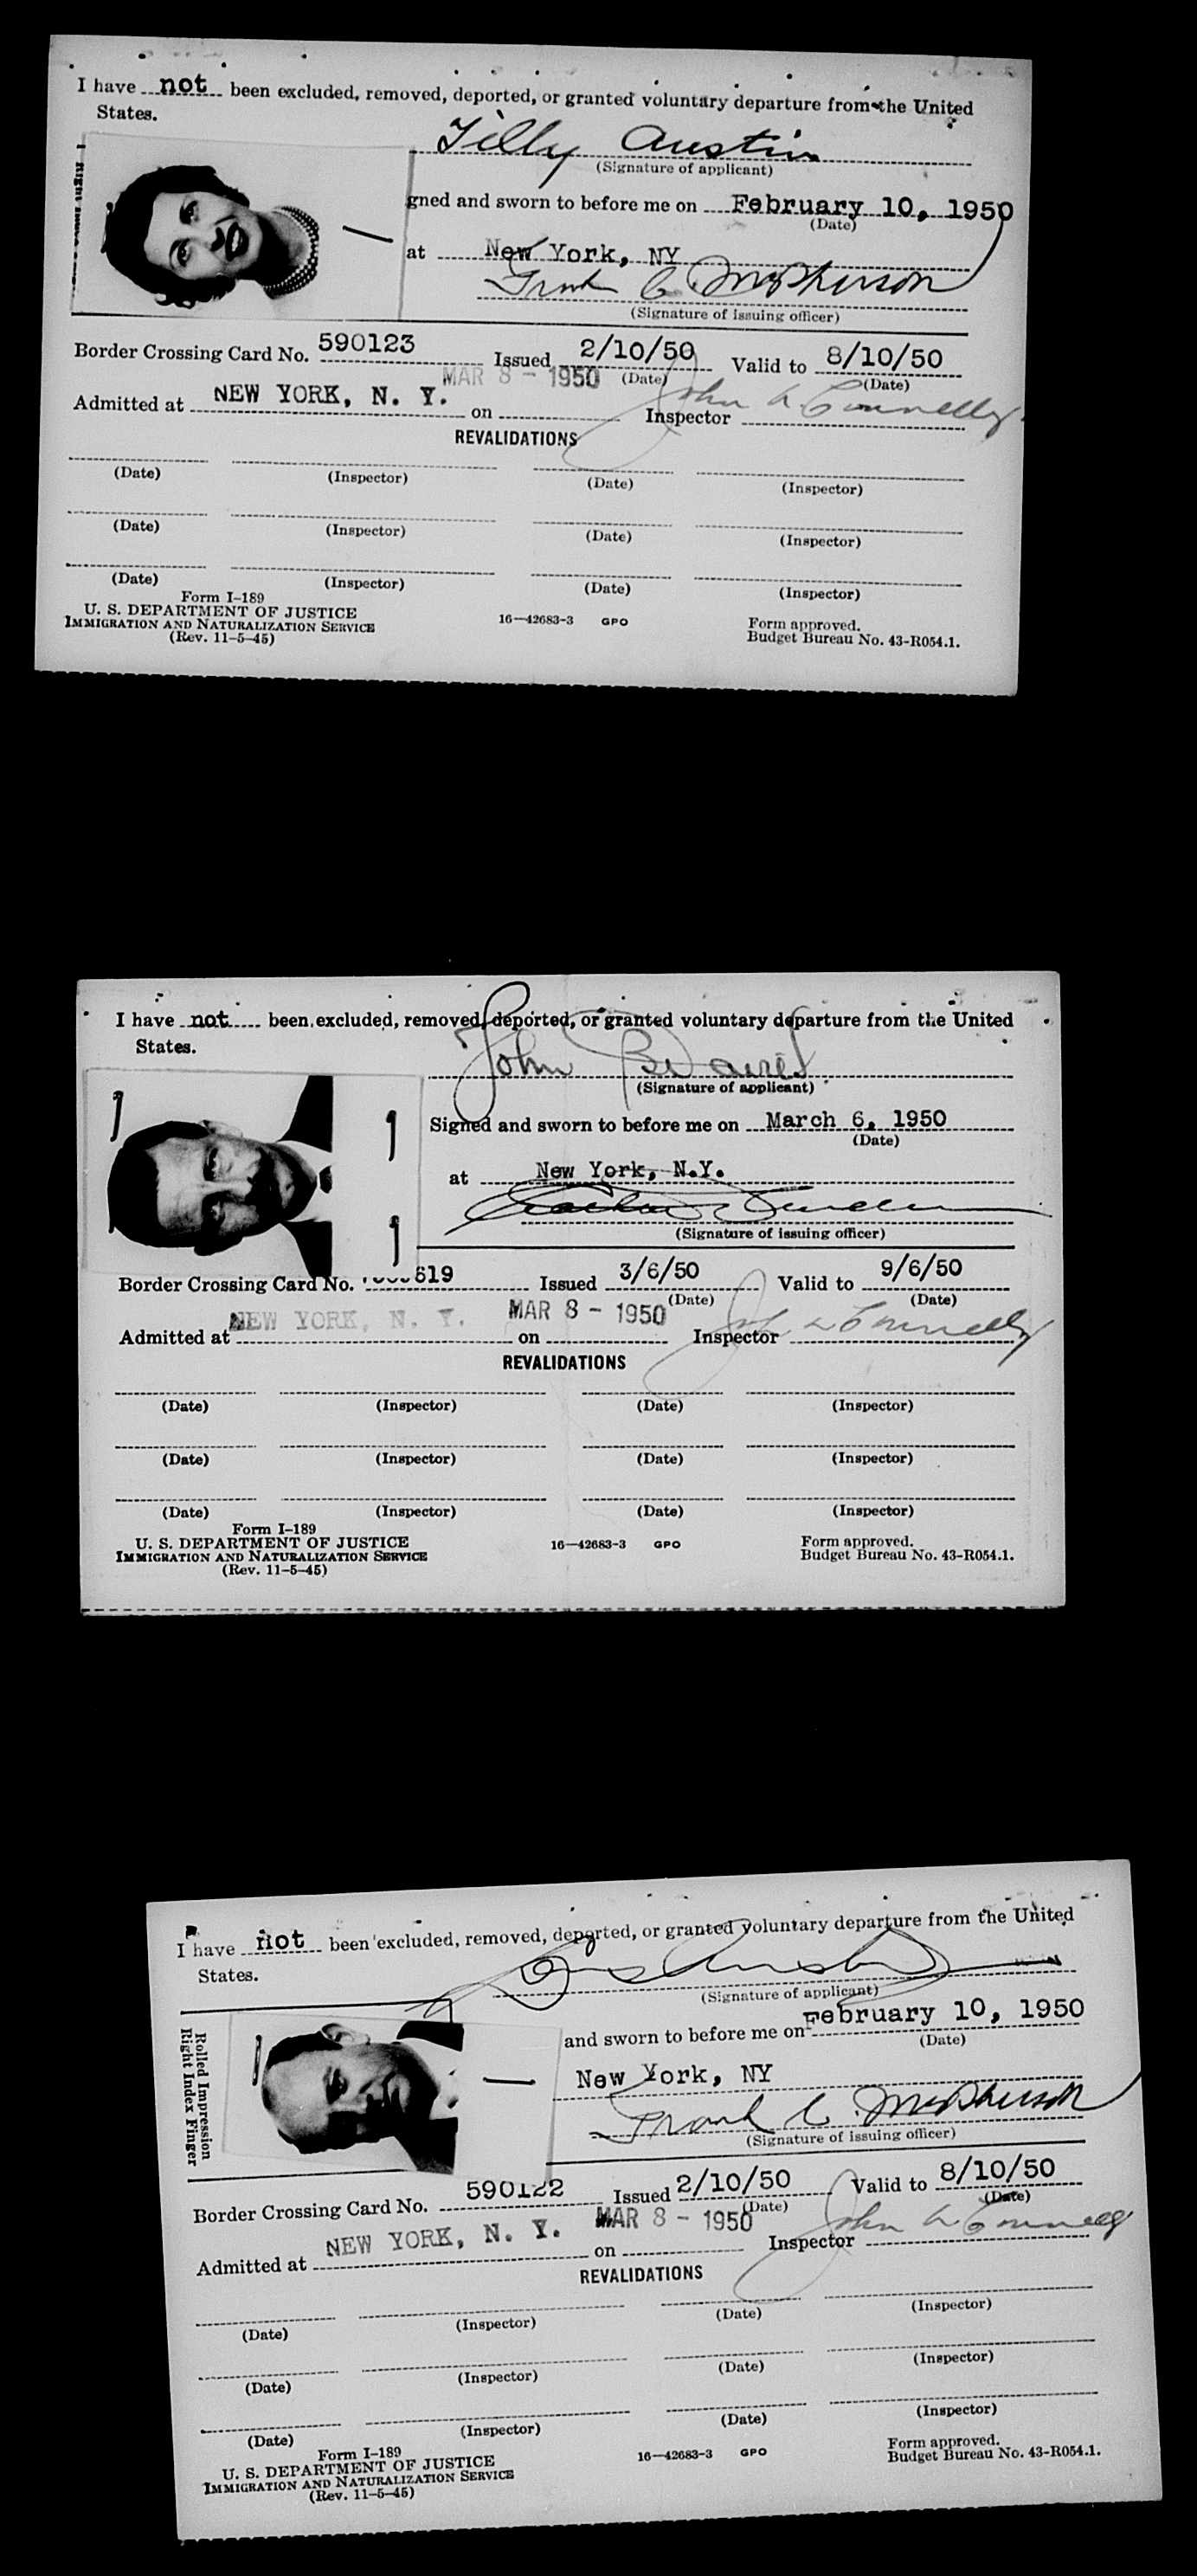 I have not been excluded, removed, deported, or granted voluntary departure from the United
States.
Tilly Austin
(Signature of applicant)
gned and sworn to before me on February 10, 1950
(Date)
at New York, NY
Frank C. McPherson
(Signature of issuing officer)
Border Crossing Card No. 590123 Issued 2/10/50 Valid to 8/10/50
(Date) (Date)
MAR 8 - 1950
Admitted at NEW YORK, N. Y. on Inspector John A. Connelly
REVALIDATIONS
(Date) (Inspector) (Date) (Inspector)
(Date) (Inspector) (Date) (Inspector)
(Date) (Inspector) (Date) (Inspector)
Form I-189
U. S. DEPARTMENT OF JUSTICE
IMMIGRATION AND NATURALIZATION SERVICE
(Rev. 11-5-45)
16—42683-3 GPO
Form approved.
Budget Bureau No. 43-R054.1.
I have not been excluded, removed, deported, or granted voluntary departure from the United
States.
John
(Signature of applicant)
Signed and sworn to before me on March 6, 1950
(Date)
at New York, N.Y.
(Signature of issuing officer)
Border Crossing Card No. 619 Issued 3/6/50 Valid to 9/6/50
(Date) (Date)
Admitted at NEW YORK, N. Y. on MAR 8 - 1950 Inspector Connelly
REVALIDATIONS
(Date) (Inspector) (Date) (Inspector)
(Date) (Inspector) (Date) (Inspector)
(Date) (Inspector) (Date) (Inspector)
Form I-189
U. S. DEPARTMENT OF JUSTICE
IMMIGRATION AND NATURALIZATION SERVICE
(Rev. 11-5-45)
16—42683-3 GPO
Form approved.
Budget Bureau No. 43-R054.1.
I have not been excluded, removed, deported, or granted voluntary departure from the United
States.
Austin
(Signature of applicant)
Rolled Impression
Right Index Finger
and sworn to before me on February 10, 1950
(Date)
New York, NY
Frank C. McPherson
(Signature of issuing officer)
Border Crossing Card No. 590122 Issued 2/10/50 Valid to 8/10/50
(Date) (Date)
Admitted at NEW YORK, N. Y. on MAR 8 - 1950 Inspector John A. Connelly
REVALIDATIONS
(Date) (Inspector) (Date) (Inspector)
(Date) (Inspector) (Date) (Inspector)
(Date) (Inspector) (Date) (Inspector)
Form I-189
U. S. DEPARTMENT OF JUSTICE
IMMIGRATION AND NATURALIZATION SERVICE
(Rev. 11-5-45)
16—42683-3 GPO
Form approved.
Budget Bureau No. 43-R054.1.